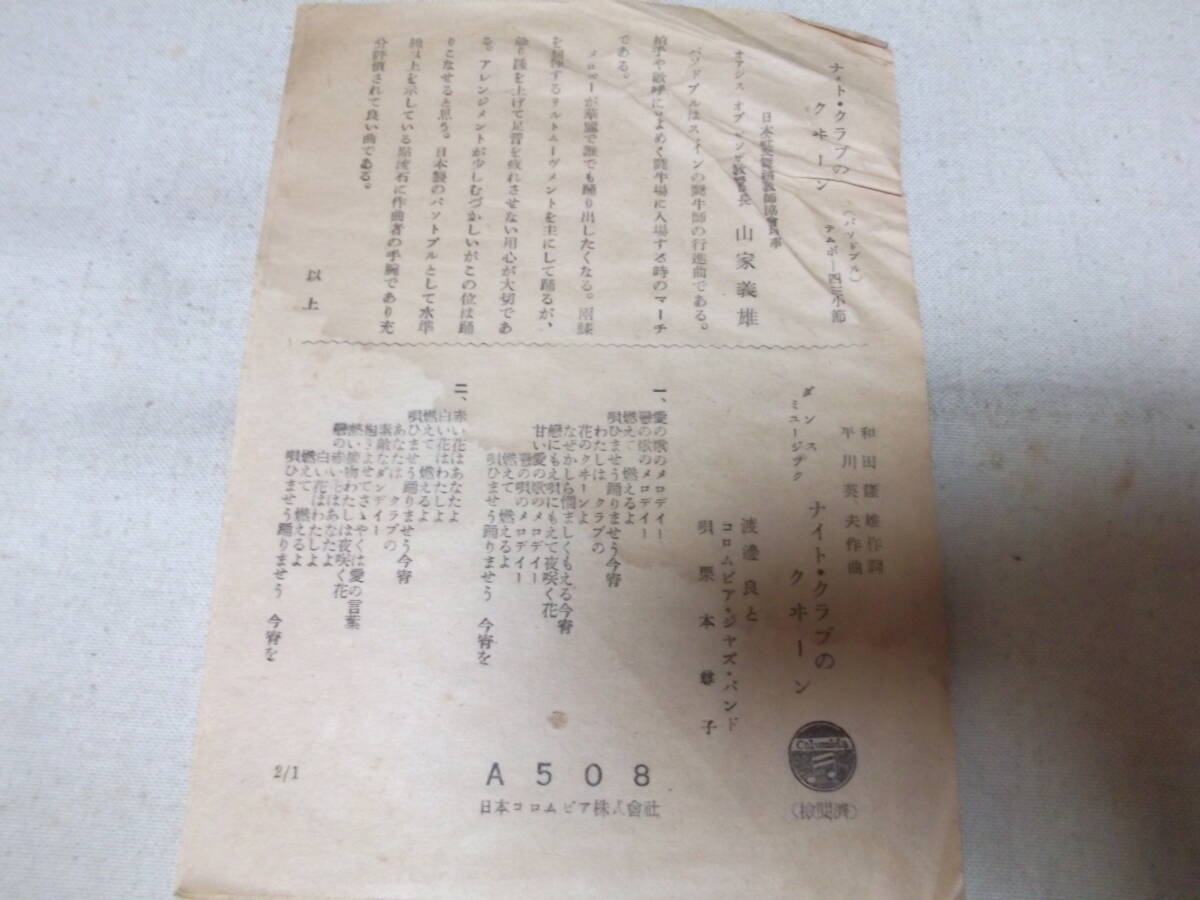 ナイト・クラブの
クヰーン
(パソドブル)
テムポー四三小節
オアシス オブ
山家義雄
パソドブルはスペインの闘牛師の行進曲である。
拍手や歓呼にどよめく闘牛場に入場する時のマーチ
である。
メロデーが華麗で誰でも踊り出したくなる。両膝
を屈伸するリルトムーヴメントを主にして踊るが、
余り踵を上げて足首を疲れさせない用心が大切であ
る。アレンジメントが少しむづかしいがこの位は踊
りこなせると思う。日本製のパソドブルとして水準
線以上を示している原流石に作曲者の手腕であり充
分評価されて良い曲である。
以上
和田隆雄作詞
平川英夫作曲
ダンス
ミュージック
ナイト・クラブの
クヰーン
渡邊良と
コロムビア・ジャズ・バンド
唄 栗本尊子
一、愛の歌のメロデイー
戀の歌のメロデイー
燃えて 燃えるよ
唄ひませう踊りませう今宵
わたしは クラブの
花のクヰーンよ
なぜかしら悩ましくもえる今宵
戀にもえ唄にもえて夜咲く花
甘い愛の歌のメロデイー
戀の唄のメロデイー
燃えて 燃えるよ
唄ひませう踊りませう 今宵を
二、赤い花はあなたよ
白い花はわたしよ
燃えて 燃えるよ
唄ひませう踊りませう今宵
あなたは クラブの
素敵なダンデイー
胸よせてさゝやくは愛の言葉
熱い接吻わたしは夜咲く花
戀の赤い花はあなたよ
白い花はわたしよ
燃えて 燃えるよ
唄ひませう踊りませう 今宵を
Columbia
(検閲済)
A508
日本コロムビア株式會社
2/1